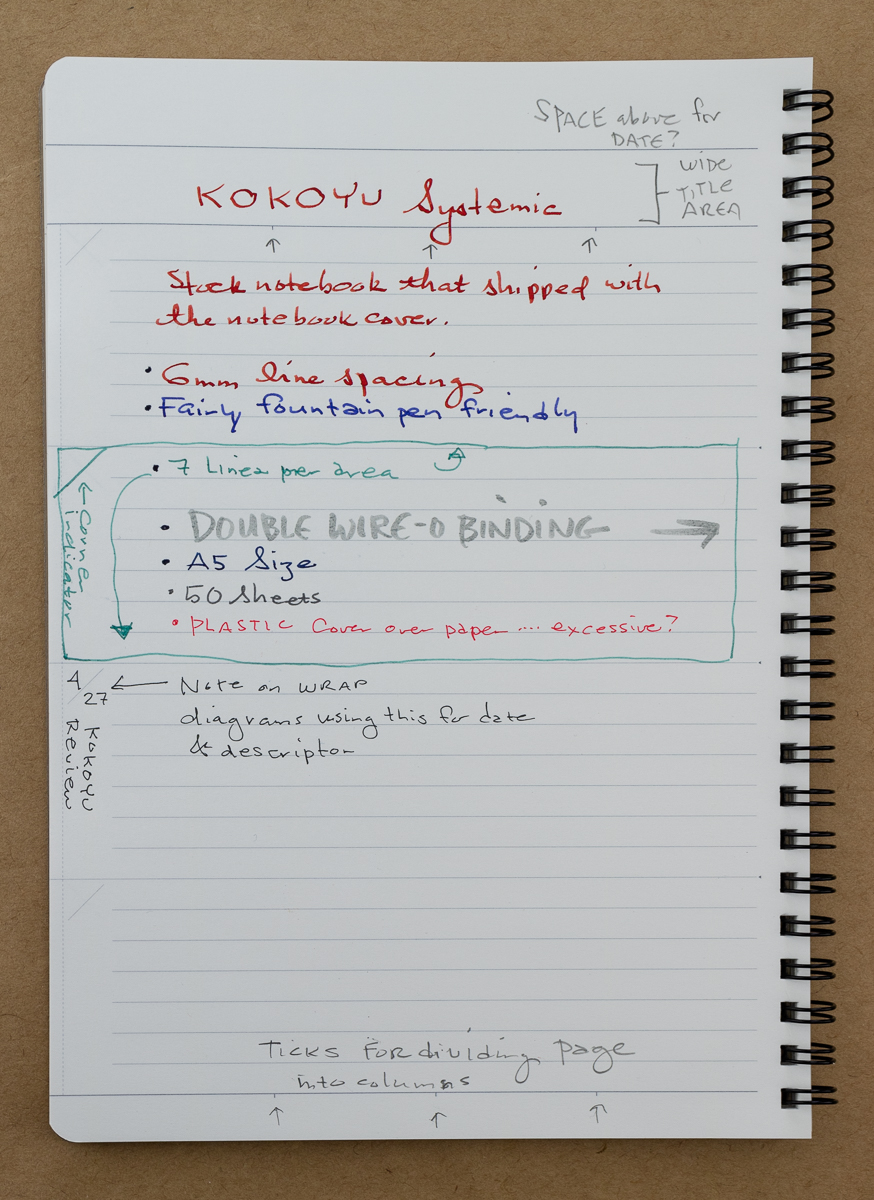 SPACE above for
DATE?
WIDE
TITLE
AREA
KOKOYU Systemic
Stock notebook that shipped with
the notebook cover.
• 6mm line spacing
• Fairly fountain pen friendly
• 7 Lines per area
← Corner
indicator
• DOUBLE WIRE-O BINDING →
• A5 Size
• 50 Sheets
• PLASTIC Cover over paper .... excessive?
4/27 ← Note on WRAP
diagrams using this for date
& descriptor
KOKOYU
Review
Ticks For dividing page
into columns